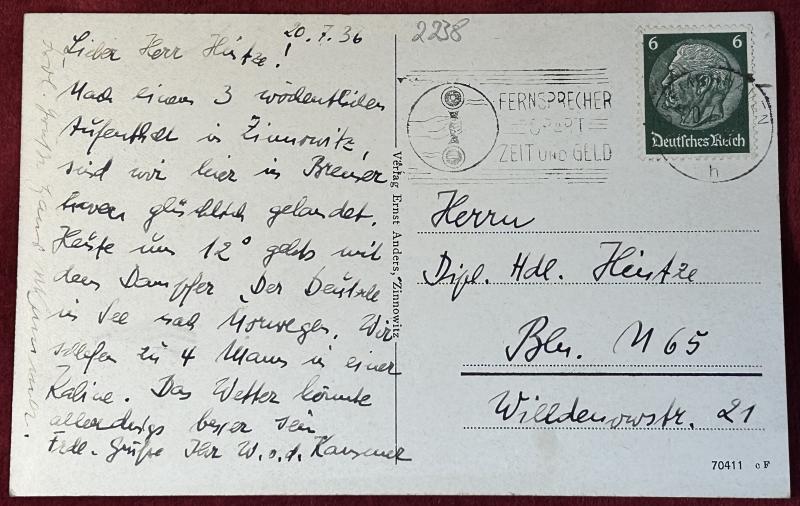 20.7.36
Lieber Herr Hintze!
Nach einem 3 wöchentlichen
Aufenthalt in Zinnowitz,
sind wir hier in Bremer
haven glücklich gelandet.
Heute um 12° gehts mit
dem Dampfer Der Deutsche
in See nach Norwegen. Wir
schlafen zu 4 Mann in einer
Kabine. Das Wetter könnte
allerdings besser sein
Frdl. Grüße Ihr W. v. d.
Verlag Ernst Anders, Zinnowitz
2238
FERNSPRECHER
SPART
ZEIT UND GELD
6 6
Deutsches Reich
EN
h
Herrn
Dipl. Hdl. Hintze
Bln. N 65
Willdenowstr. 21
70411 c F